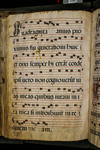 Quadraginta annis pro
ximus fui generationi huic &
et dixi semper hi errant corde
ipsi vero non cognoverunt vi
as meas quibus iuravi in ira